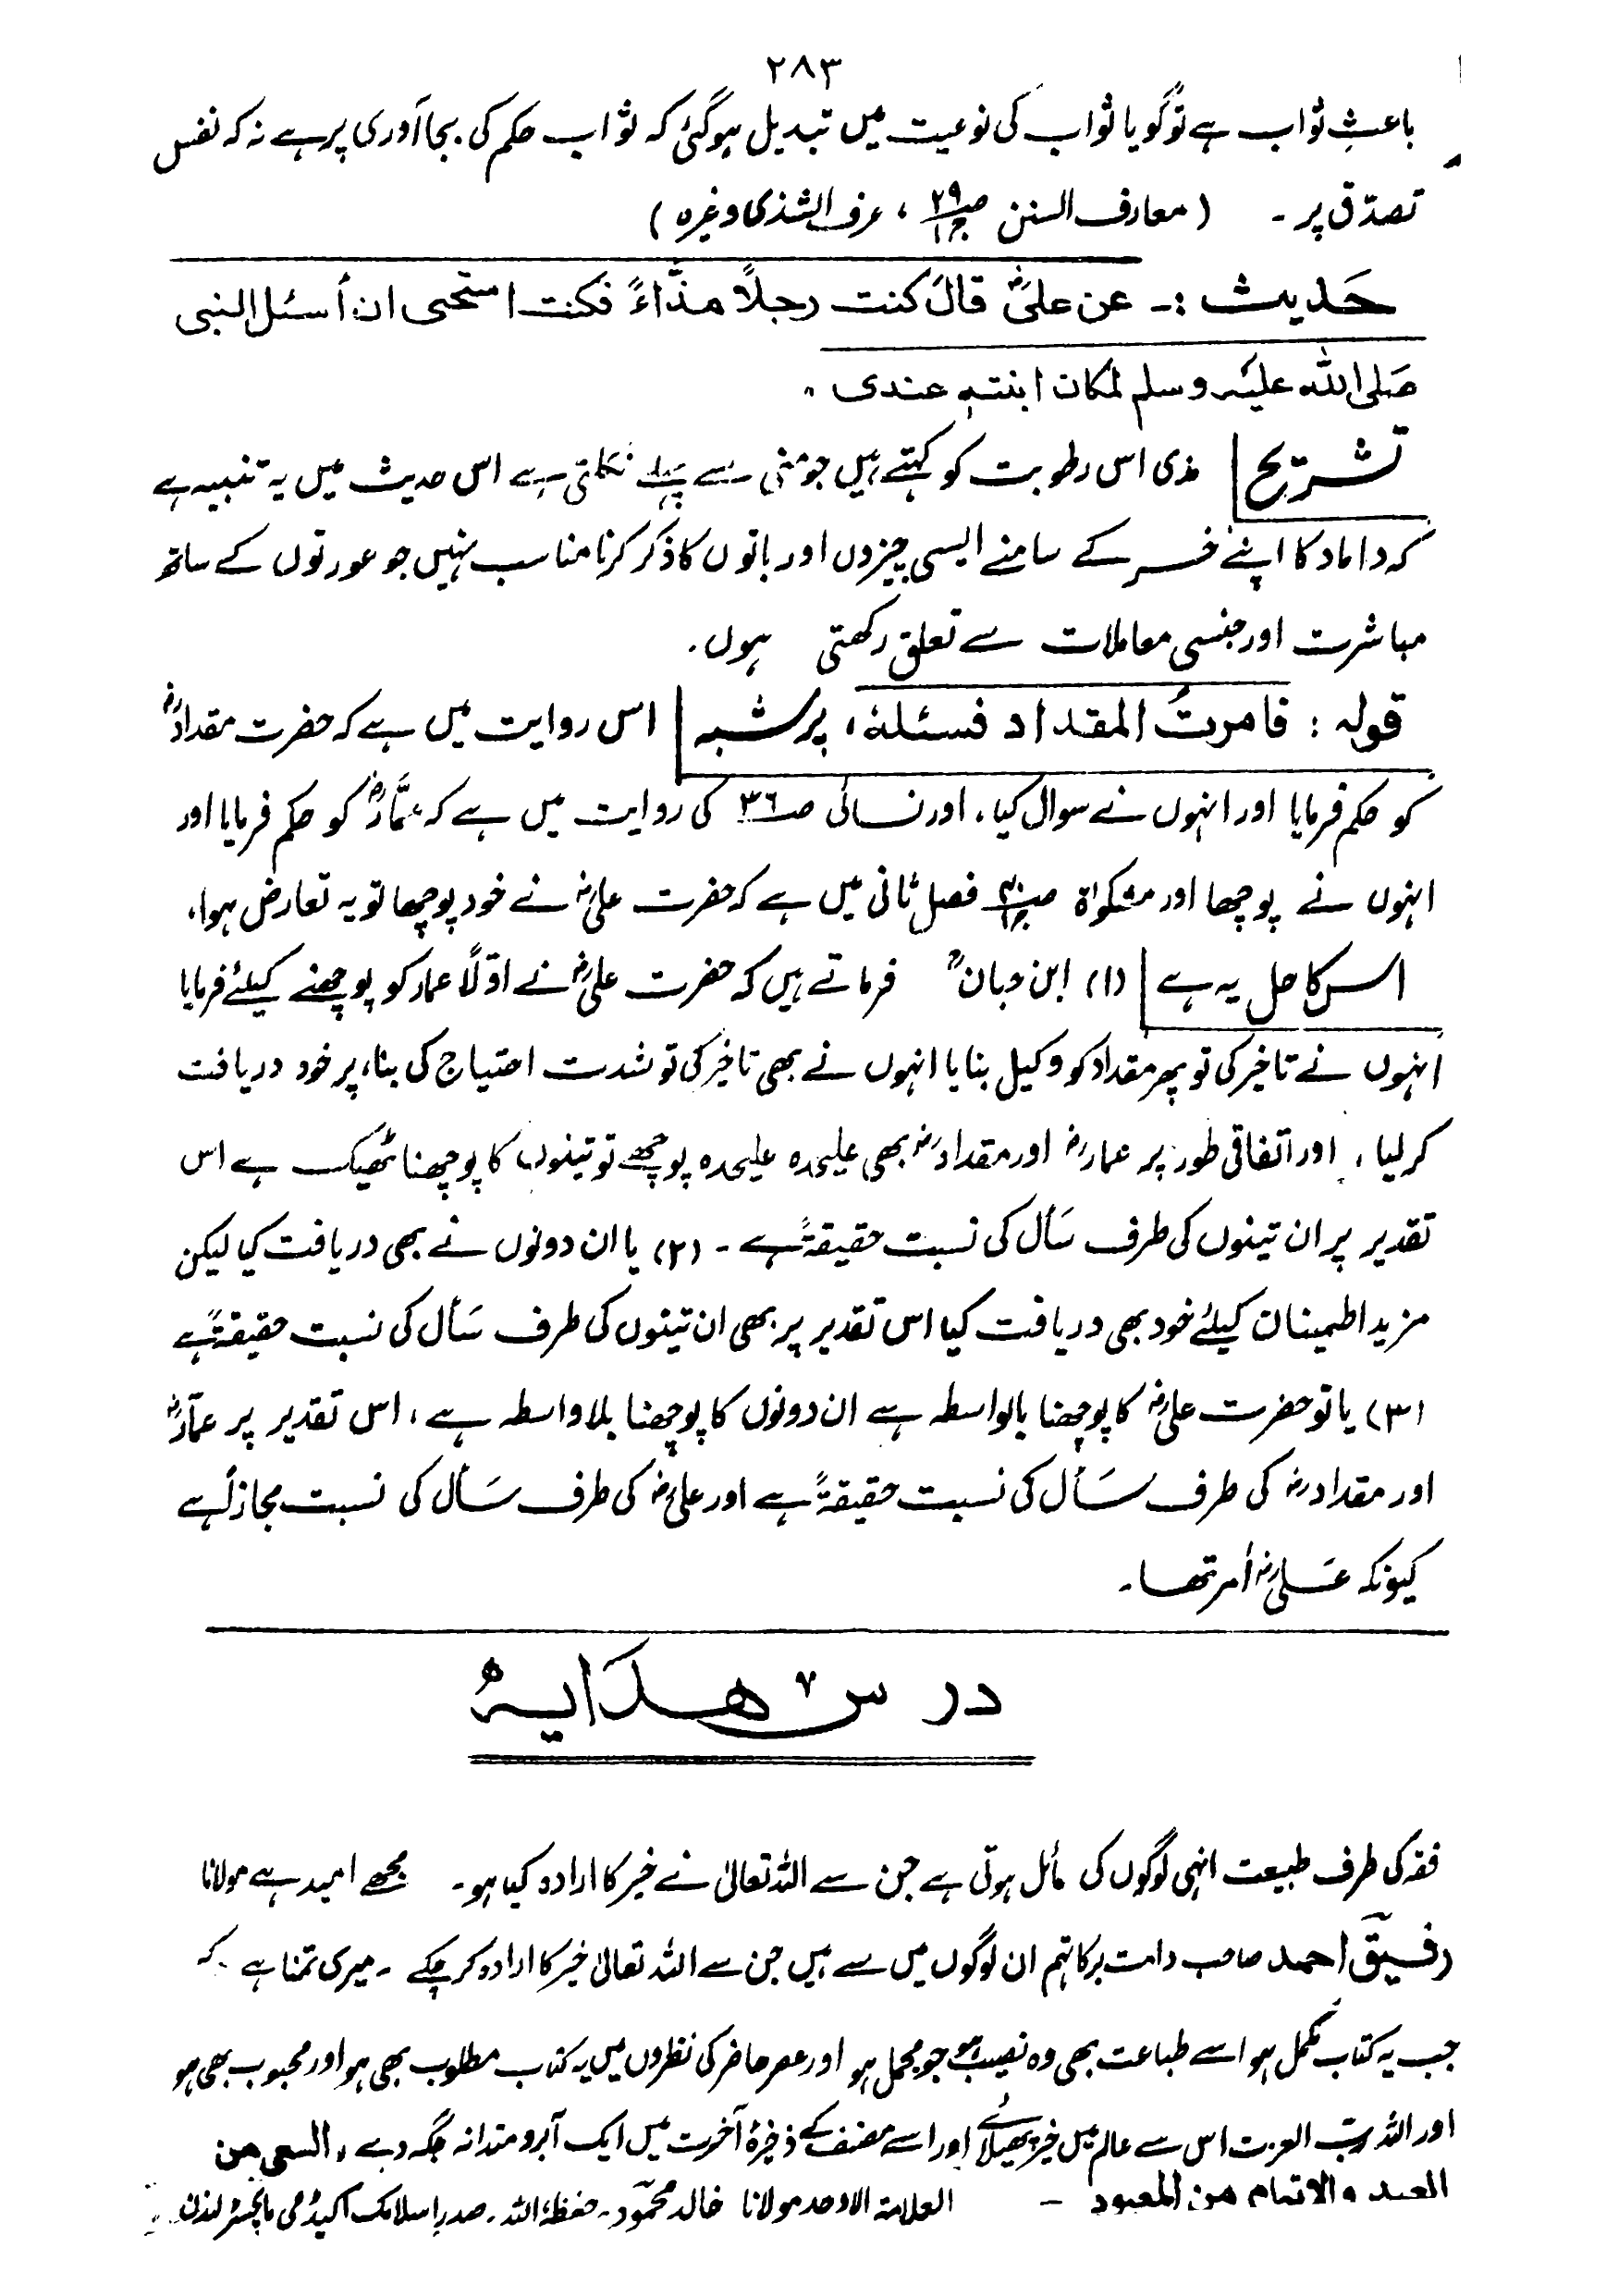 ۲۸۳
باعثِ ثواب ہے تو گویا ثواب کی نوعیت میں تبدیل ہوگئی کہ ثواب حکم کی بجا آوری پر ہے نہ کہ نفس
تصدّق پر ۔ (معارف السنن ص۲۹ ج۱، عرف الشذی وغیرہ)
حَدیث :۔ عن علیؓ قال کنت رجلاً مذّاءً فکنت استحیی ان أسئل النبی
صَلی اللہ علیہ وسلم لمکان ابنتہٖ عندی ۔
تشریح مذی اس رطوبت کو کہتے ہیں جو منی سے پہلے نکلتی ہے اس حدیث میں یہ تنبیہ ہے
کہ داماد کا اپنے خسر کے سامنے ایسی چیزوں اور باتوں کا ذکر کرنا مناسب نہیں جو عورتوں کے ساتھ
مباشرت اور جنسی معاملات سے تعلق رکھتی ہوں ۔
قولہ : فامرتُ المقداد فسئلہٗ، پر شبہ اس روایت میں ہے کہ حضرت مقدادؓ
کو حکم فرمایا اور انہوں نے سوال کیا ، اور نسائی ص۳۶ کی روایت میں ہے کہ عمّارؓ کو حکم فرمایا اور
انہوں نے پوچھا اور مشکوٰۃ فصل ثانی میں ہے کہ حضرت علیؓ نے خود پوچھا تو یہ تعارض ہوا ،
اس کا حل یہ ہے (۱) ابن حبانؒ فرماتے ہیں کہ حضرت علیؓ نے اوّلًا عمار کو پوچھنے کیلئے فرمایا
انہوں نے تاخیر کی تو پھر مقداد کو وکیل بنایا انہوں نے بھی تاخیر کی تو شدت احتیاج کی بناء پر خود دریافت
کرلیا ، اور اتفاقی طور پر عمارؓ اور مقدادؓ بھی علیحدہ علیحدہ پوچھے تو تینوں کا پوچھنا ٹھیک ہے اس
تقدیر پر ان تینوں کی طرف سَأل کی نسبت حقیقۃً ہے ۔ (۲) یا ان دونوں نے بھی دریافت کیا لیکن
مزید اطمینان کیلئے خود بھی دریافت کیا اس تقدیر پر بھی ان تینوں کی طرف سَأل کی نسبت حقیقۃً ہے
(۳) یا تو حضرت علیؓ کا پوچھنا بالواسطہ ہے ان دونوں کا پوچھنا بلا واسطہ ہے ، اس تقدیر پر عمّارؓ
اور مقدادؓ کی طرف سَأل کی نسبت حقیقۃً ہے اور علیؓ کی طرف سَأل کی نسبت مجازاً ہے
کیونکہ عَلیؓ اٰمر تھا ۔
درس ھدایہ
فقہ کی طرف طبیعت انہی لوگوں کی مائل ہوتی ہے جن سے اللہ تعالیٰ نے خیر کا ارادہ کیا ہو ۔ مجھے امید ہے مولانا
رفیق احمد صاحب دامت برکاتہم ان لوگوں میں سے ہیں جن سے اللہ تعالیٰ خیر کا ارادہ کرچکے ۔ میری تمنا ہے کہ
جب یہ کتاب مکمل ہو اسے طباعت بھی وہ نصیب ہو جو مجمل ہو اور عصر حاضر کی نظروں میں یہ کتاب مطلوب بھی ہو اور محبوب بھی ہو
اور اللہ ربّ العزت اس سے عالم میں خیر پھیلائے اور اسے مصنف کے ذخیرۂ آخرت میں ایک آبرو مندانہ جگہ دے ، السعی من
العبد والاتمام من المعبود ۔ العلامۃ الاوحد مولانا خالد محمّود ۔ حفظہٗ اللہ ۔ صدر اسلامک اکیڈمی مانچسٹر لندن